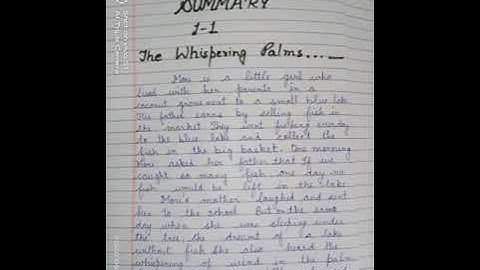 SUMMARY
1-1
The Whispering Palms....
Mou is a little girl who
lived with her parents in a
coconut grove next to a small blue lake
His father earns by selling fish in
the market They went evening
to the blue lake and collect the
fish in the big basket. One morning
Mou asked her father that If we
caught so many fish one day no
fish would be left in the lake
Mou's mother laughed and sent
her to the school. But on the same
day when she was sleeping under
the tree, she dreamt of a lake
without fish She also heard the
whispering of wind in the palm